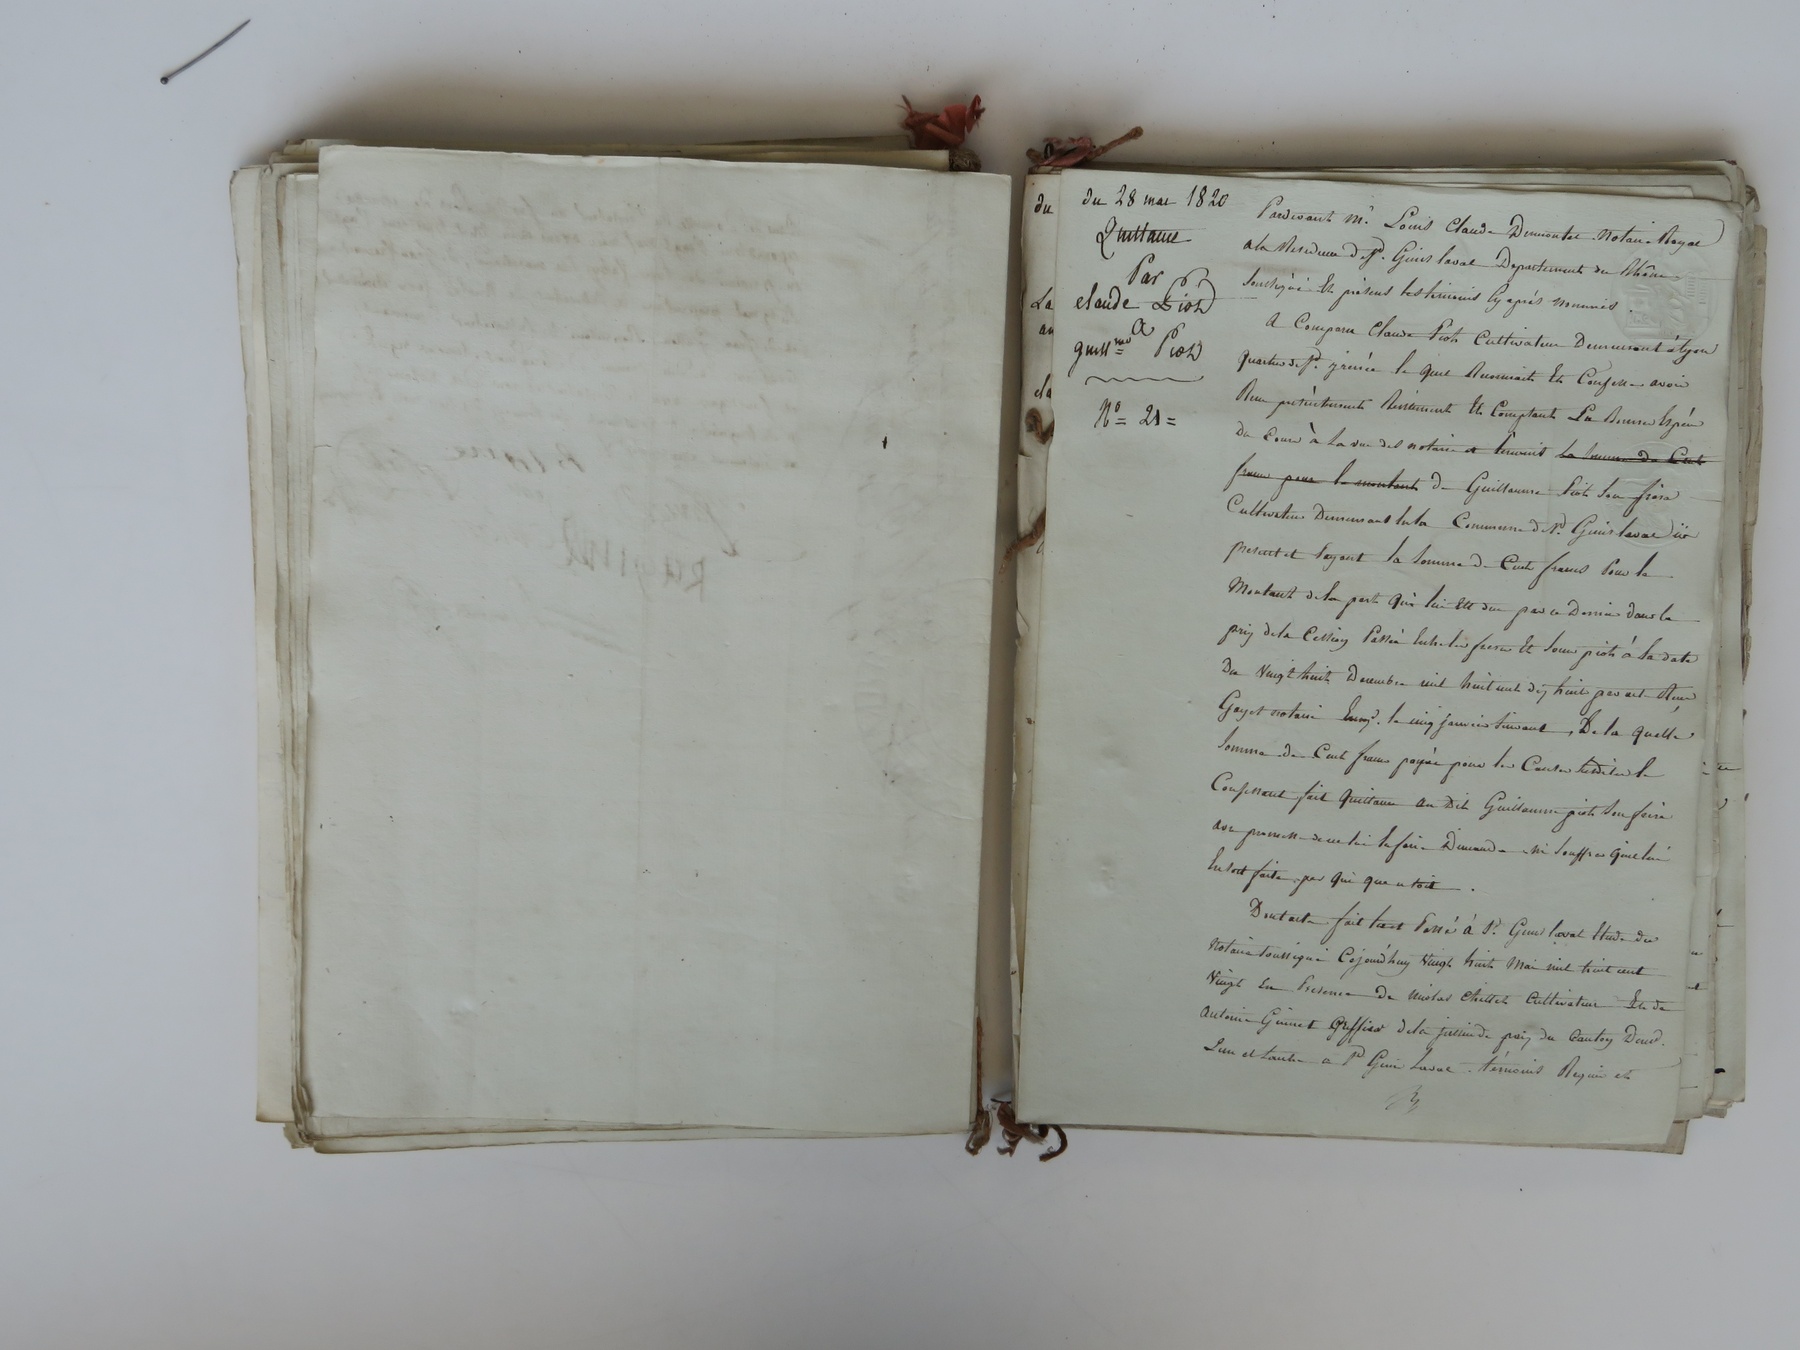 du
La
au
cla
du 28 mai 1820
Quittance
Par
claude Pioty
a
guill.me Pioty
N.o = 21 =
Pardevant M.e Louis Claude Dumontet Notaire Royal
a la Residence de S.t Genis laval Departement du Rhône
Soussigné Et présens les temoins cy après nommés.
A Comparu Claude Piot Cultivateur Demeurant à Lyon
quartier de S.t yrénée le quel Reconnait Et Confesse avoir
Reçu présentement Réellement Et Comptant En Bonnes Espèces
Du Cours à la vue des notaire et témoins la somme de Cent
francs pour le montant de Guillaume Piot son frère
Cultivateur Demeurant En la Commune de S.t Genis laval ici
present et payant la Somme de Cent francs Pour le
Montant de la part qui lui Est due par ce Dernier dans le
prix de la Cession Passée Entre les freres Et Soeur piot à la date
Du Vingt huit Decembre mil huit cent dix huit par acte Reçu
Gayet notaire Enreg. le cinq janvier suivant, De la quelle
Somme de Cent francs payée pour les Causes susdites le
Confessant fait Quittance au Dit Guillaume piot son frère
avec promesse de ne lui En faire Demande ni Souffrir qu'il lui
En soit faite par qui que ce soit.
Dont acte fait et Passé à S.t Genis laval Etude du
Notaire soussigné Cejourd'huy Vingt huit Mai mil huit cent
Vingt En Presence de Nicolas Chillet Cultivateur Et de
antoine Guinet Greffier de la justice de paix du Canton Dem.t
L'un et L'autre a S.t Genis Laval témoins Requis et